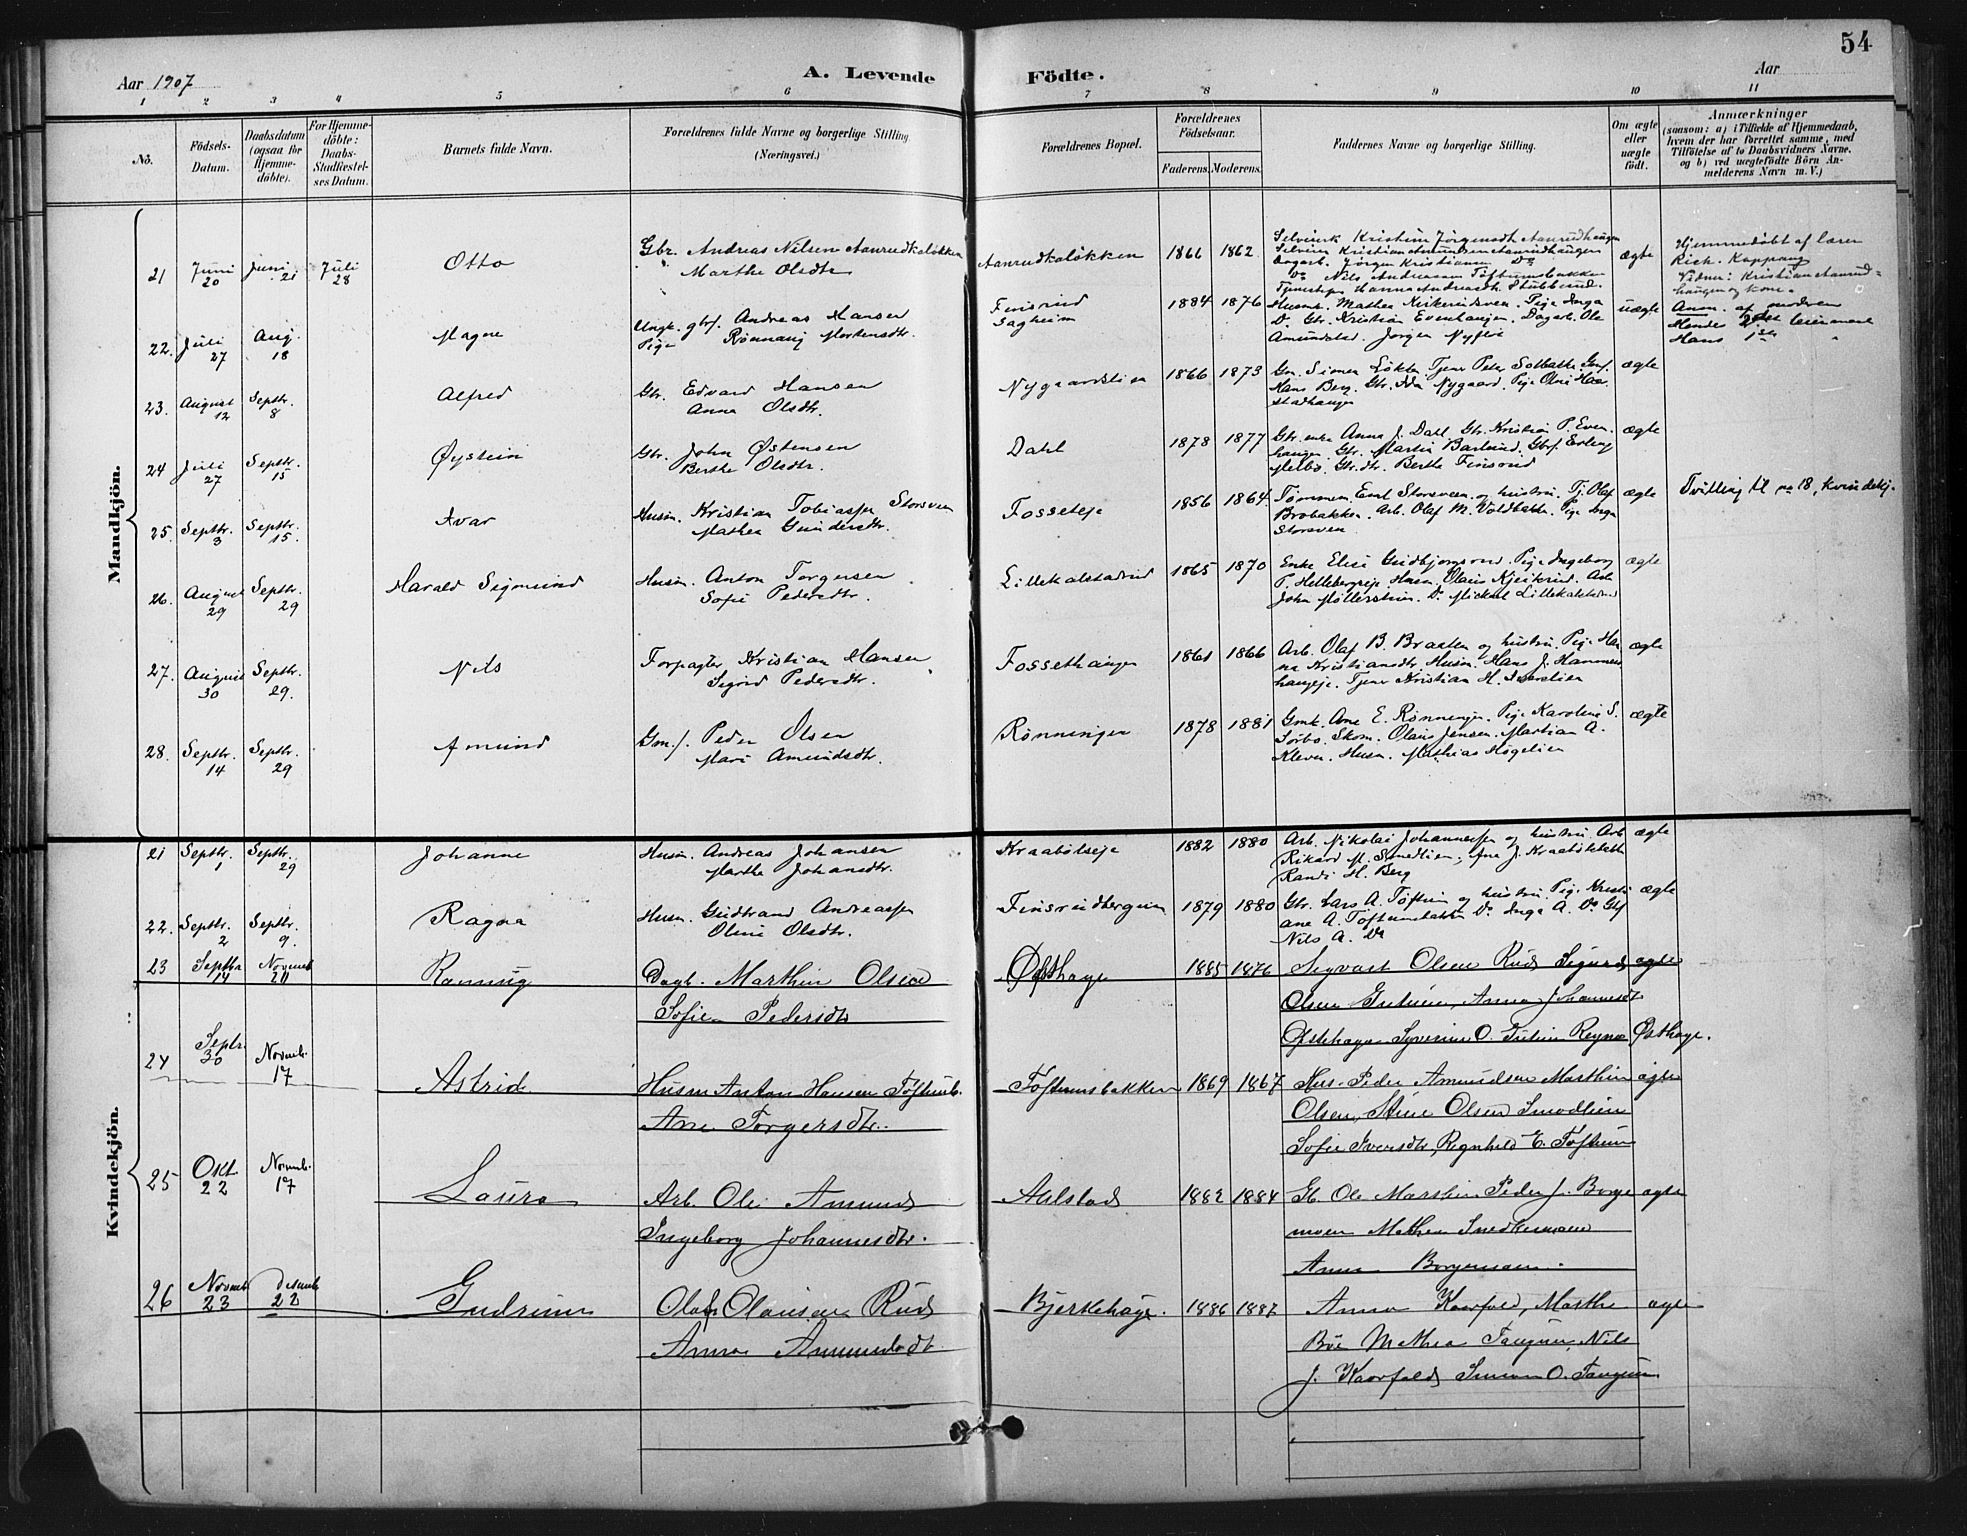 54
Aar 1907
A. Levende Födte.
Aar
1 2 3 4 5 6 7 8 9 10 11
No.
Födsels-Datum.
Daabsdatum (ogsaa for Hjemme-döbte).
For Hjemme-döbte: Daabs-Stadfæstel-ses Datum.
Barnets fulde Navn.
Forældrenes fulde Navne og borgerlige Stilling
(Næringsvei.)
Forældrenes Bopæl.
Forældrenes Födselsaar.
Faderens. Moderens.
Faddernes Navne og borgerlige Stilling.
Om ægte eller uægte födt.
Anmærkninger
(saasom: a) i Tilfælde af Hjemmedaab,
hvem der har forrettet samme, med
Tilföielse af to Daabsvidners Navne,
og b) ved uægtefödte Börn An-
melderens Navn m. V.)
Mandkjön.
21 Juni 20 Juni 21 Juli 28 Otto
Gbr. Andreas Nilsen Aanrudkaløkken
Marthe Olsdtr
Aanrudkaløkken 1866 1862
Kristine Jørgensdt. Aanrudhaugen
Kristian Amundsen Aanrudhaugen
Dagarb. Jørgen Kristiansen Do
Do Nils Andreassen Toftumsbakken
ægte
Hjemmedøbt af lærer
Rich. Koppang
Vidner: Kristian Aanrud-
haugen og kone.
22. Juli 27 Aug. 18 Magne
Ungk. gbrs. Andreas Hansen
Pige Rønnaug Mortensdtr.
Finsrud
Sagheim
1884 1876
Pige Inga
D. Gbr. Kristian Evenhaugen. Dagarb. Ole
Amundstad. Jørgen Nyflot
uægte
Anm. af moderen
Hendes 2det leiermaal
Hans 1ste "
23. August 12 Septbr. 8 Alfred
Gbr. Edvard Hansen
Anna Olsdtr.
Nygaardslien 1866 1873
Gm. Simen Løkken Tjener Peter Solbakke Gmf.
Hans Berg. Gbr. Ida Nygaard. Pige Olivi Haar-
stadhaugen
ægte
24 Juli 27 Septbr. 15 Øystein
Gbr. John Østensen
Berthe Olsdtr.
Dahl 1878 1877
Gbr. enke Anna J. Dahl. Gbr. Kristian P. Even-
haugen. Gbr. Martin Barlund. Gbrs. Erling
Melbø. Gbr. dtr. Berthe Finsrud
ægte
25. Septbr. 3 Septbr. 15. Ivar
Husm. Kristian Tobiassen Storsveen
Mathea Gundersdtr.
Fosseteje 1856 1864.
Tømmerm. Emil Storsveen og hustru. Tj. Olaf
Brobakken. Arb. Olaf M. Voldbakke. Pige Inga
Storsveen
ægte
Tvilling til no 18, kvindekj.
26. August 29 Septbr. 29 Harald Sigmund
Husm. Anton Torgersen
Sofie Pedersdtr.
Lillekalstadrud 1865 1870
Enke Elise Gudbjørgsrud. Pige Ingeborg
P. Hellebergseje. Husm. Olaus Kjeikrud. Arb.
John Møllerstuen. Do. Mickael Lillekalstadrud
ægte
27. August 30 Septbr. 29. Nils
Forpagter Kristian Hansen
Sigrid Pedersdtr.
Fossethaugen 1861 1866
Arb. Olaf B. Braaten og hustru. Pige Han-
na Kristiansdtr. Husm. Hans J. Hammers-
haugeje. Tjener Kristian H. Iverslien
ægte
28. Septbr. 14 Septbr. 29 Amund
Gm.s. Peder Olsen
Mari Amundsdtr.
Rønningen 1878 1881
Gmk. Ane E. Rønningen. Pige Karoline S.
Sørbø. Skom. Olaus Jensen. Martian A.
Kleven. Husm. Mathias Høgelien
ægte
Kvindekjön.
21 Septbr. 1 Septbr. 29 Johanne
Husm. Andreas Johansen
Marthe Johansdtr.
Kraabølseje 1882 1880
Arb. Nikolai Johannessen og hustru. Arb.
Rikard M. Smedlien. Ane J. Kraabølsbakk
Randi H. Berg
ægte
22. Septbr. 2 Septbr. 9. Ragna
Husm. Gudbrand Andreassen
Oline Olsdtr.
Finsrudbergum 1879 1880
Gbr. Lars A. Toftum og hustru. Pige Kristi-
ane A. Toftumsbakken Do Inga A. Do Gbs
Nils A. Do
ægte
23 Septbr 14 Novemb 24 Rønnug
Dagb. Marthin Olsen
Sofie Pedersdtr
Østhage 1885 1876
Sigvart Olsen Rud Sigurd
Olsen Anna Johannesdt
Østehage Syverine O. Ragna Østhage.
ægte
24 Septbr. 30 Novmb. 17 Astrid
Husm Anton Hansen Toftumb.
Ane Torgersdtr.
Toftumsbakken 1869 1867
Hus. Peder Amundsen Marthin
Olsen, Stine Olsen Smedlien
Sofie Iversdtr, Ragnhild E. Toftum
ægte
25 Okt. 22 Novmb. 17 Laura
Arb. Ole Amunds
Ingeborg Johannesdtr.
Aulstad 1882 1884
Gb. Ole Marthin Peder J. Borge
moen Mathea Smedkemoen
Anna Borgemoen.
ægte
26 Novmb 23 Desemb 22 Gudrun
Olaf Olausen Rud
Anna Amundsdt
Bjerkehage. 1886 1887
Anna Kaarfald, Marthe
Bøe Mathea Taugum, Nils
J. Kaarfald, Simen O. Taugum
ægte